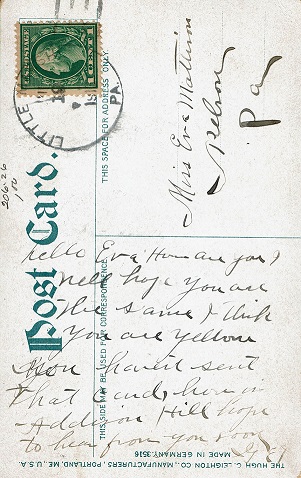 U.S. POSTAGE
1 CENT 1
LITTLE
PA.
THIS SPACE FOR ADDRESS ONLY.
Miss Eva Matteson
Nelson
Pa
206-26
100
Post Card.
THIS SIDE MAY BE USED FOR CORRESPONDENCE
hello Eva How are you I
well hope you are
the same I think
you are yellow
you haven't sent
that Card, how is
Addison Hill hope
to hear from you soon
THE HUGH C. LEIGHTON CO., MANUFACTURERS, PORTLAND, ME., U.S.A.
MADE IN GERMANY. 3516